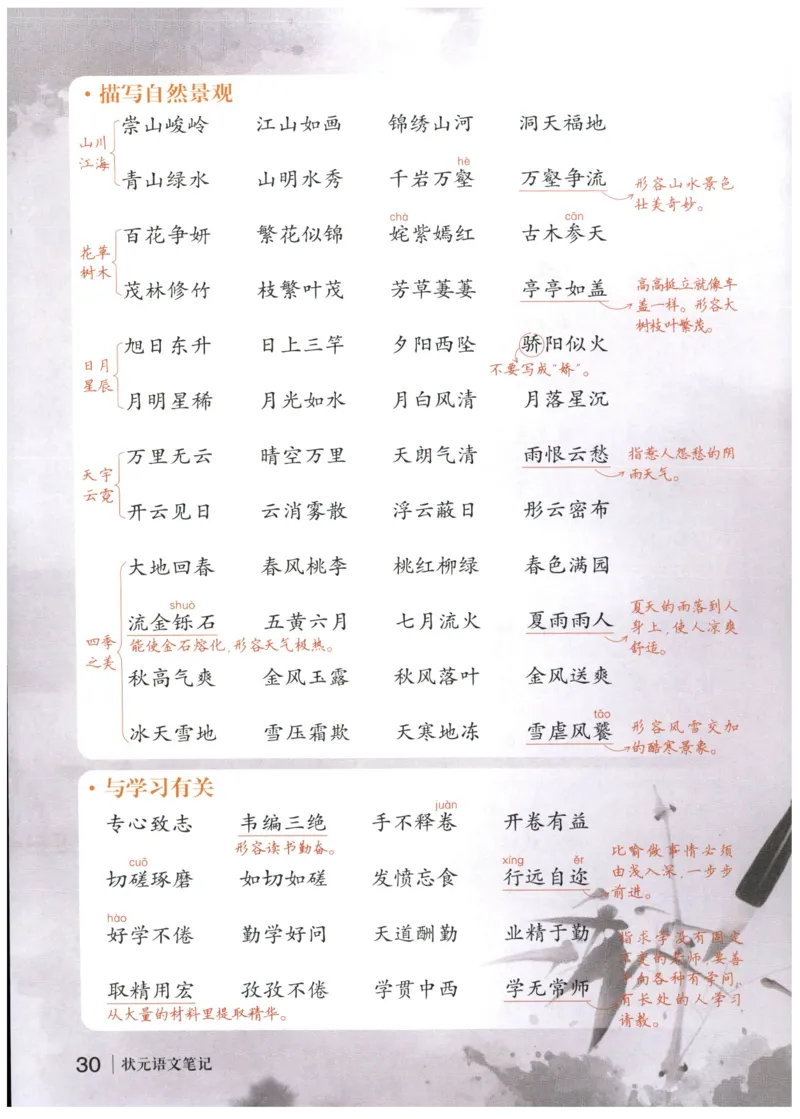 ·描写自然景观
山川江海
崇山峻岭 江山如画 锦绣山河 洞天福地
hè
青山绿水 山明水秀 千岩万壑 万壑争流
形容山水景色壮美奇妙。
花草树木
chà cān
百花争妍 繁花似锦 姹紫嫣红 古木参天
茂林修竹 枝繁叶茂 芳草萋萋 亭亭如盖
高高挺立就像车盖一样。形容大树枝叶繁茂。
日月星辰
旭日东升 日上三竿 夕阳西坠 骄阳似火
不要写成“娇”。
月明星稀 月光如水 月白风清 月落星沉
天宇云霓
万里无云 晴空万里 天朗气清 雨恨云愁
指惹人怨愁的阴雨天气。
开云见日 云消雾散 浮云蔽日 彤云密布
四季之美
大地回春 春风桃李 桃红柳绿 春色满园
shuò
流金铄石 五黄六月 七月流火 夏雨雨人
能使金石熔化,形容天气极热。
夏天的雨落到人身上,使人凉爽舒适。
秋高气爽 金风玉露 秋风落叶 金风送爽
tāo
冰天雪地 雪压霜欺 天寒地冻 雪虐风饕
形容风雪交加的酷寒景象。
·与学习有关
juàn
专心致志 韦编三绝 手不释卷 开卷有益
形容读书勤奋。
cuō xíng ěr
切磋琢磨 如切如磋 发愤忘食 行远自迩
比喻做事情必须由浅入深,一步步前进。
hào
好学不倦 勤学好问 天道酬勤 业精于勤
取精用宏 孜孜不倦 学贯中西 学无常师
从大量的材料里提取精华。
指求学没有固定不变的老师,要善于向各种有学问,有长处的人学习请教。
30 状元语文笔记